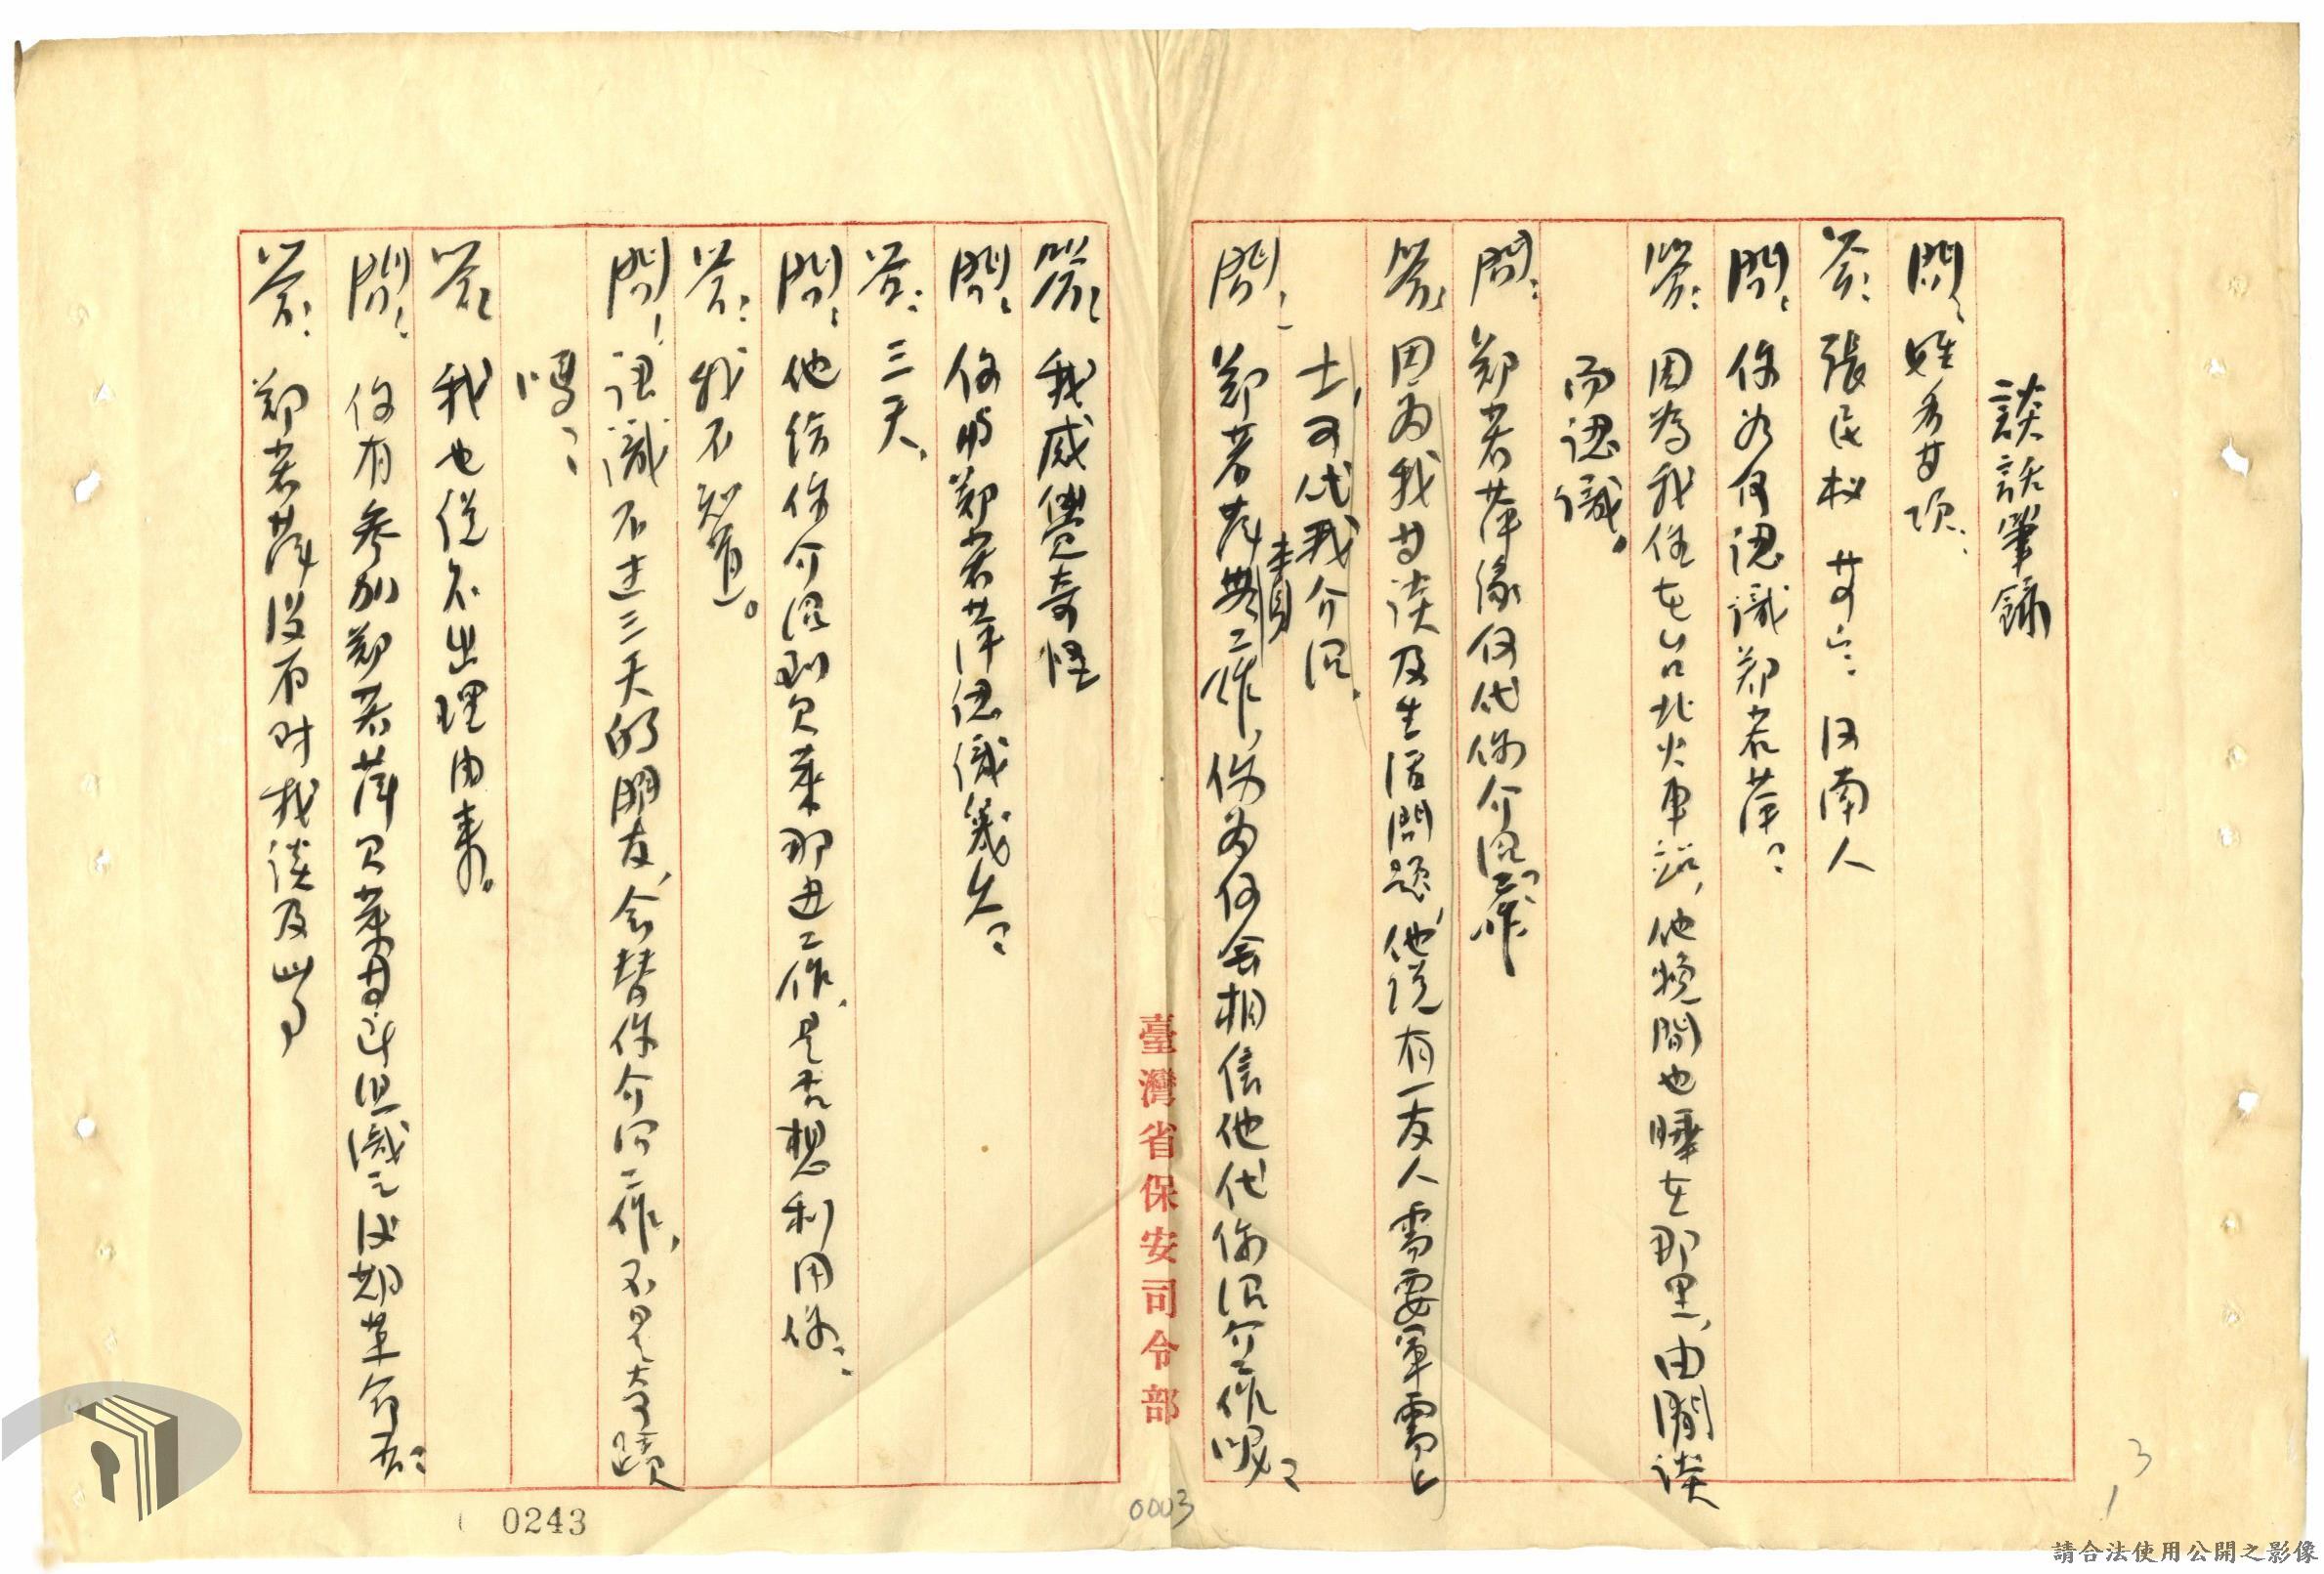 談話筆錄
問：姓名等項：
答：張民权 廿六 河南人
問：你如何認識鄭若萍？
答：因為我住在台北火車站，他晚間也睡在那里，由閒談
而認識。
問：鄭若萍緣何代你介紹工作
答：因为我曾談及生活問題，他说有一友人需要軍需上
士，可代我介紹。
問：鄭若萍無責工作，你为何会相信他代你紹介工作呢？
答：我感覺奇怪
問：你与鄭若萍認識幾久？
答：三天。
問：他給你介紹到吳萊那边工作，是否想利用你？
答：我不知道。
問：認識不过三天的朋友，会替你介紹工作，不是奇蹟
嗎？
答：我也说不出理由來。
問：你有參加鄭若萍吳萊等
答：鄭若萍没有对我談及此事
臺灣省保安司令部
0243
0003
3
1
請合法使用公開之影像